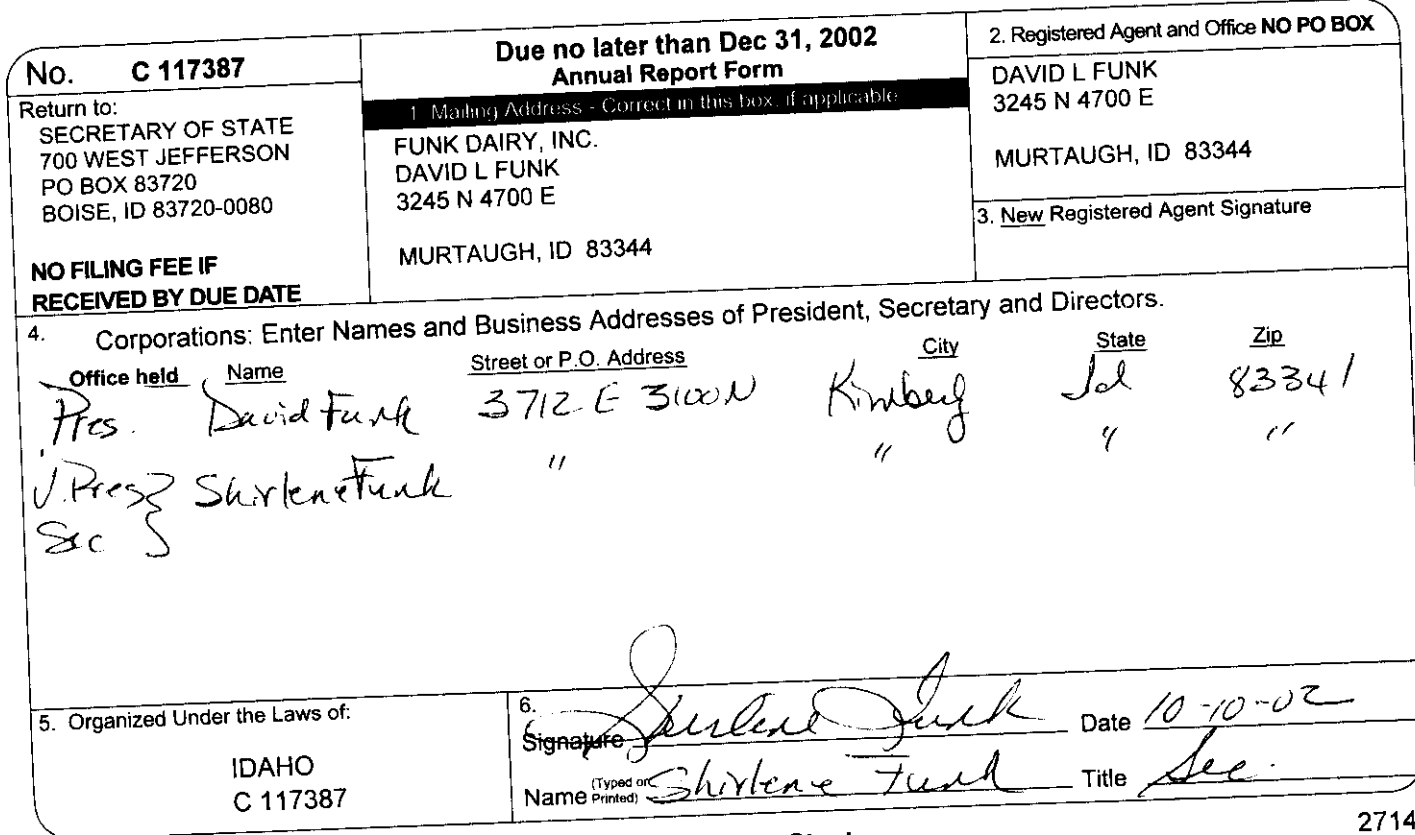 No. C 117387
Return to:
SECRETARY OF STATE
700 WEST JEFFERSON
PO BOX 83720
BOISE, ID 83720-0080
NO FILING FEE IF
RECEIVED BY DUE DATE
Due no later than Dec 31, 2002
Annual Report Form
1. Mailing Address - Correct in this box, if applicable
FUNK DAIRY, INC.
DAVID L FUNK
3245 N 4700 E
MURTAUGH, ID 83344
2. Registered Agent and Office NO PO BOX
DAVID L FUNK
3245 N 4700 E
MURTAUGH, ID 83344
3. New Registered Agent Signature
4. Corporations: Enter Names and Business Addresses of President, Secretary and Directors.
Office held Name Street or P.O. Address City State Zip
Pres. David Funk 3712 E 3100 N Kimberly Id 83341
V. Pres Shirlene Funk " " " "
Sec
5. Organized Under the Laws of:
IDAHO
C 117387
6.
Signature Shirlene Funk Date 10-10-02
Name (Typed or Printed) Shirlene Funk Title Sec.
2714